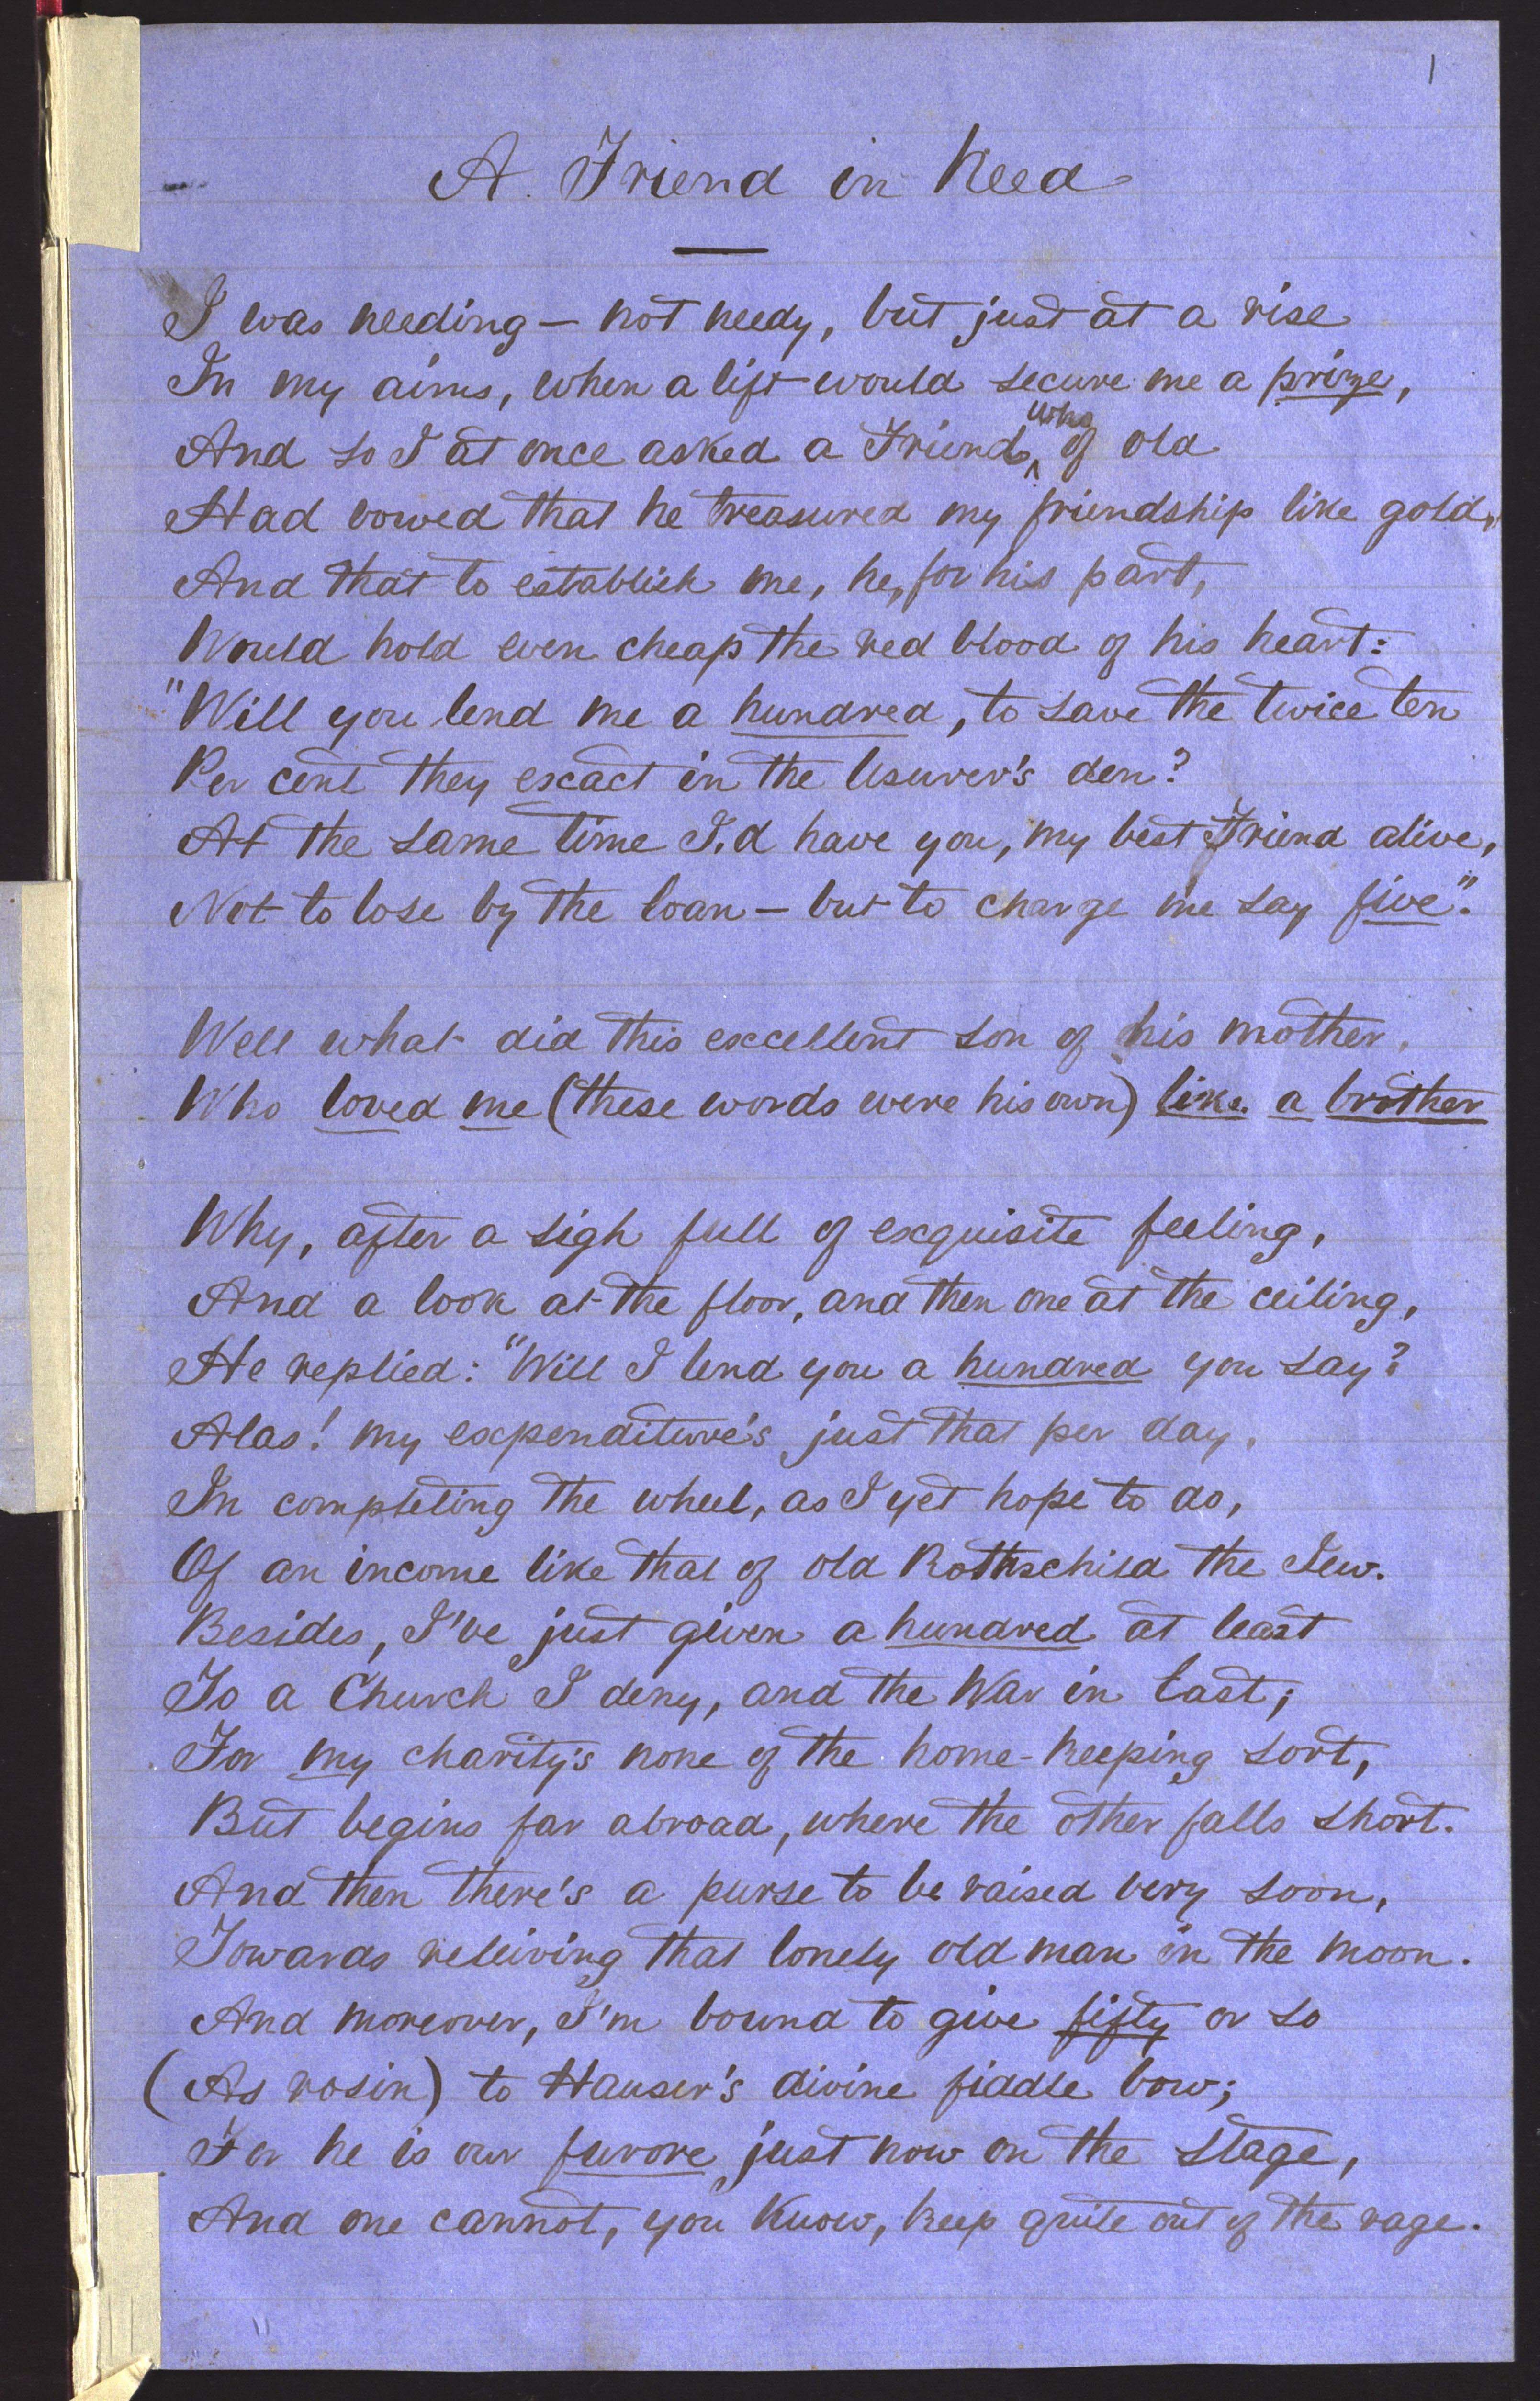 1
A Friend in Need
I was needing — not needy, but just at a rise
In my aims, when a lift would secure me a prize,
And so I at once asked a Friend, who of old
Had vowed that he treasured my friendship like gold,
And that to establish me, he, for his part,
Would hold even cheap the red blood of his heart:
"Will you lend me a hundred, to save the twice ten
Per cent they exact in the Usurer's den?
At the same time I'd have you, my best Friend alive,
Not to lose by the loan — but to charge me say five."
Well what did this excellent son of his mother,
Who loved me (these words were his own) like a brother
Why, after a sigh full of exquisite feeling,
And a look at the floor, and then one at the ceiling,
He replied: "Will I lend you a hundred you say?
Alas! my expenditure's just that per day,
In completing the wheel, as I yet hope to do,
Of an income like that of old Rothschild the Jew.
Besides, I've just given a hundred at least
To a Church I deny, and the War in East;
For my charity's none of the home-keeping sort,
But begins far abroad, where the other falls short.
And then there's a purse to be raised very soon,
Towards releiving that lonely old man in the moon.
And moreover, I'm bound to give fifty or so
(As rosin) to Hauser's divine fiddle bow;
For he is our furore just now on the stage,
And one cannot, you know, keep quite out of the rage.